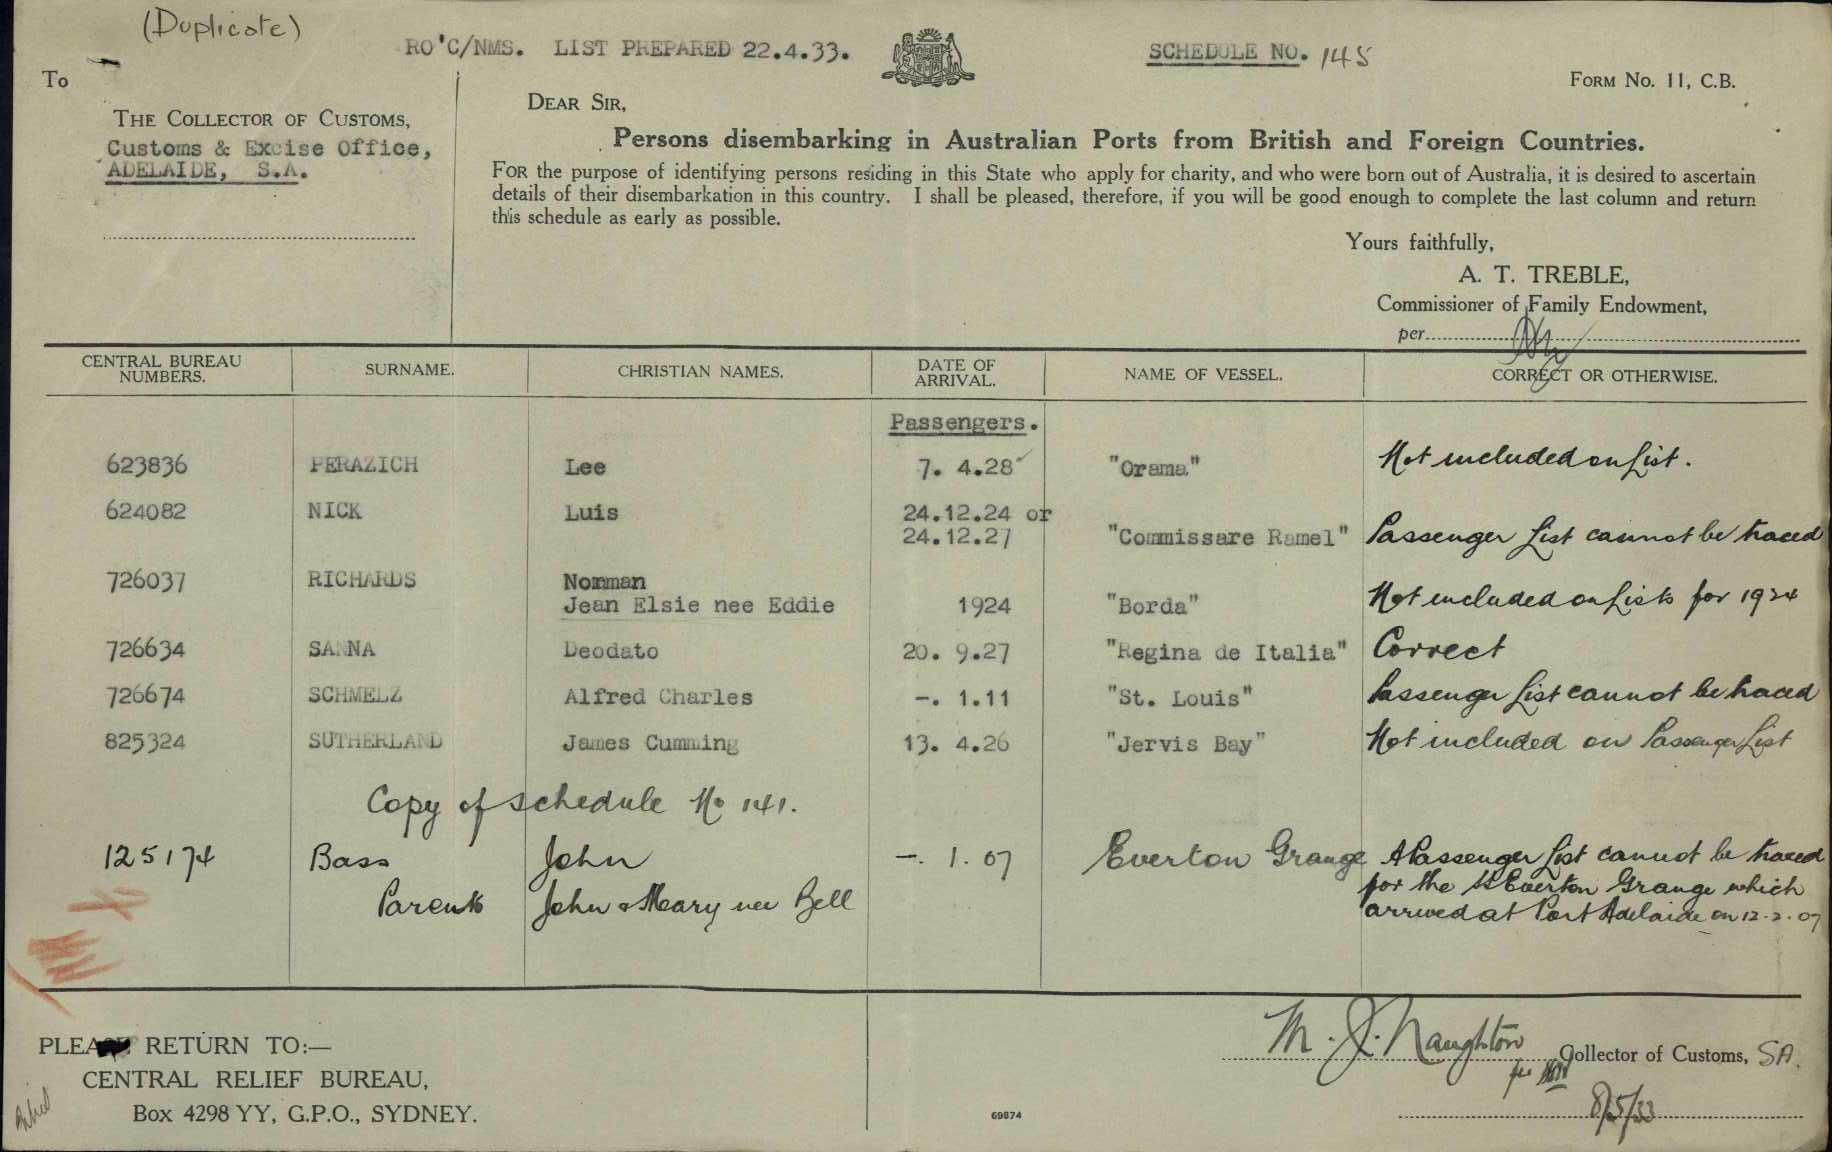 (Duplicate)
RO'C/NMS. LIST PREPARED 22.4.33.
SCHEDULE NO. 145
To
FORM NO. 11, C.B.
THE COLLECTOR OF CUSTOMS,
Customs & Excise Office,
ADELAIDE, S.A.
DEAR SIR,
Persons disembarking in Australian Ports from British and Foreign Countries.
FOR the purpose of identifying persons residing in this State who apply for charity, and who were born out of Australia, it is desired to ascertain
details of their disembarkation in this country. I shall be pleased, therefore, if you will be good enough to complete the last column and return
this schedule as early as possible.
Yours faithfully,
A. T. TREBLE,
Commissioner of Family Endowment,
per
CENTRAL BUREAU NUMBERS. SURNAME. CHRISTIAN NAMES. DATE OF ARRIVAL. NAME OF VESSEL. CORRECT OR OTHERWISE.
Passengers.
623836 PERAZICH Lee 7. 4.28 "Orama" Not included on List.
624082 NICK Luis 24.12.24 or
24.12.27 "Commissare Ramel" Passenger List cannot be traced
726037 RICHARDS Norman
Jean Elsie nee Eddie 1924 "Borda" Not included on Lists for 1924
726634 SANNA Deodato 20. 9.27 "Regina de Italia" Correct
726674 SCHMELZ Alfred Charles -. 1.11 "St. Louis" Passenger List cannot be traced
825324 SUTHERLAND James Cumming 13. 4.26 "Jervis Bay" Not included on Passenger List
Copy of schedule No 141.
125174 Bass John -. 1. 07 Everton Grange A Passenger List cannot be traced
for the Everton Grange which
Parents John & Mary nee Bell arrived at Port Adelaide on 12-2-07
M. J. Naughton Collector of Customs, SA.
8/5/33
PLEASE RETURN TO:—
CENTRAL RELIEF BUREAU,
Box 4298 YY, G.P.O., SYDNEY.
69874